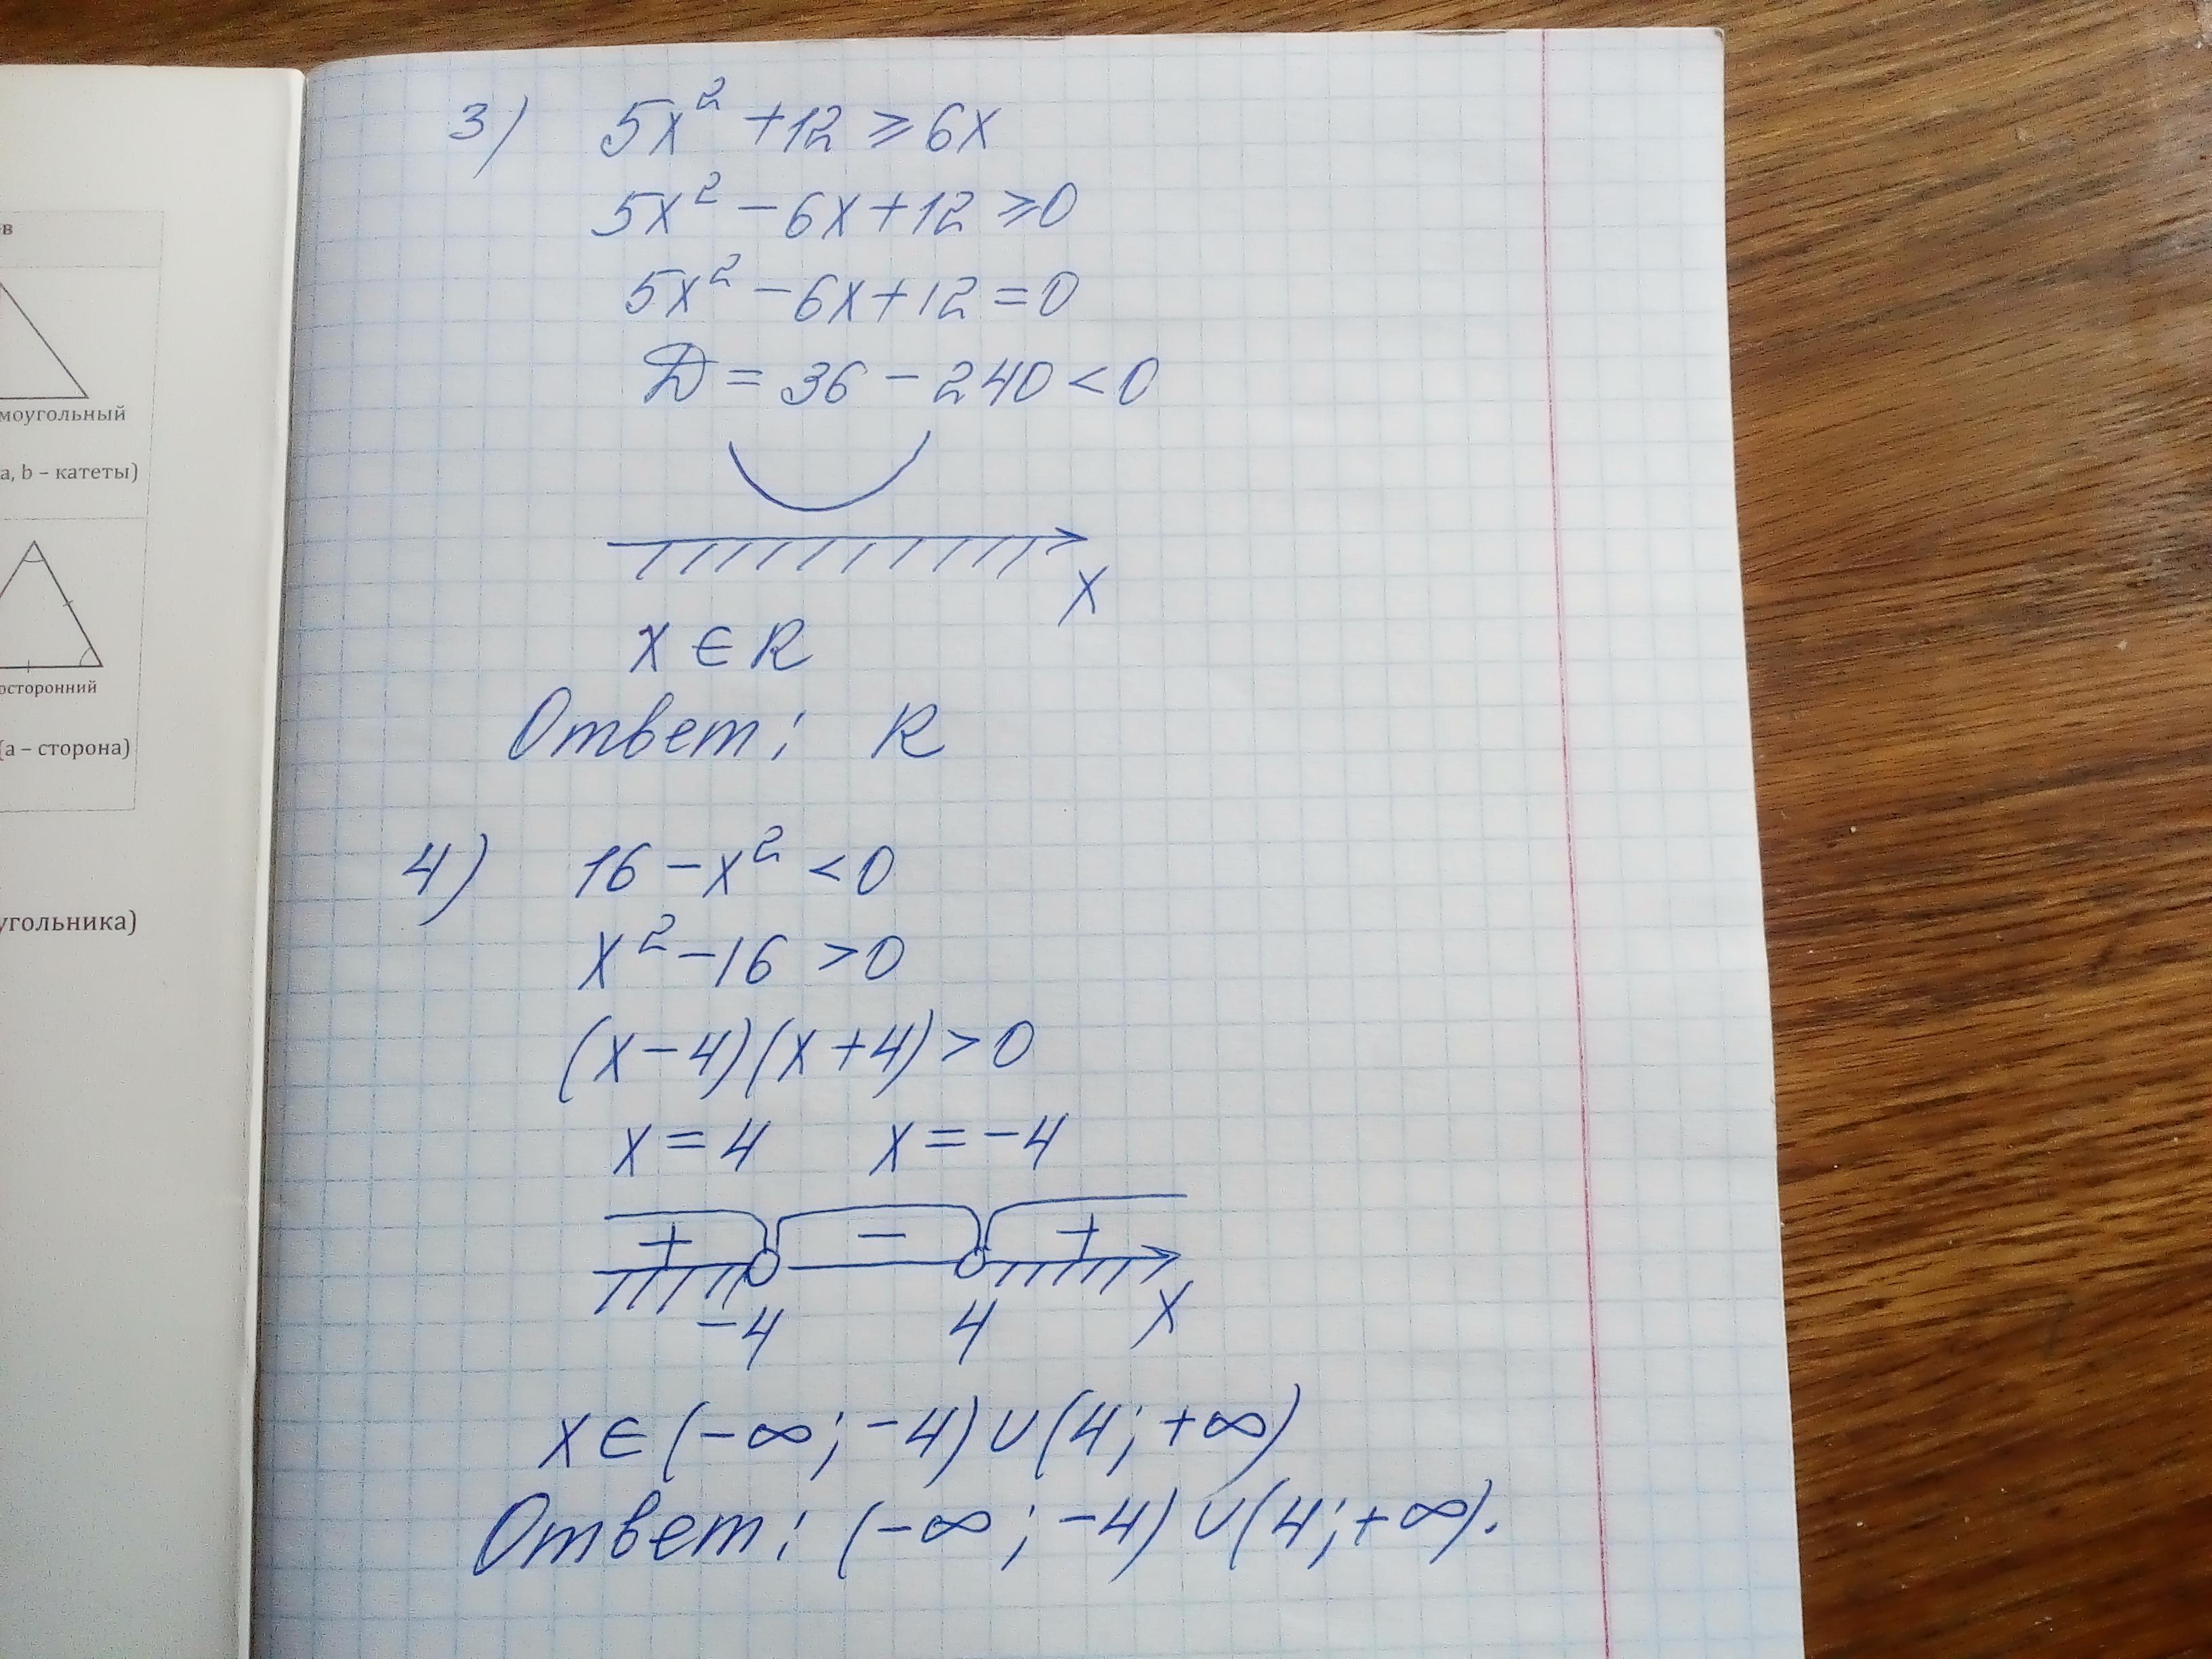 в
моугольный
a, b – катеты)
осторонний
(a – сторона)
угольника)
3) 5x² + 12 ⩾ 6x
5x² − 6x + 12 ⩾ 0
5x² − 6x + 12 = 0
D = 36 − 240 < 0
x
x ∈ R
Ответ: R
4) 16 − x² < 0
x² − 16 > 0
(x − 4)(x + 4) > 0
x = 4 x = −4
+ − +
−4 4 x
x ∈ (−∞; −4) ∪ (4; +∞)
Ответ: (−∞; −4) ∪ (4; +∞).